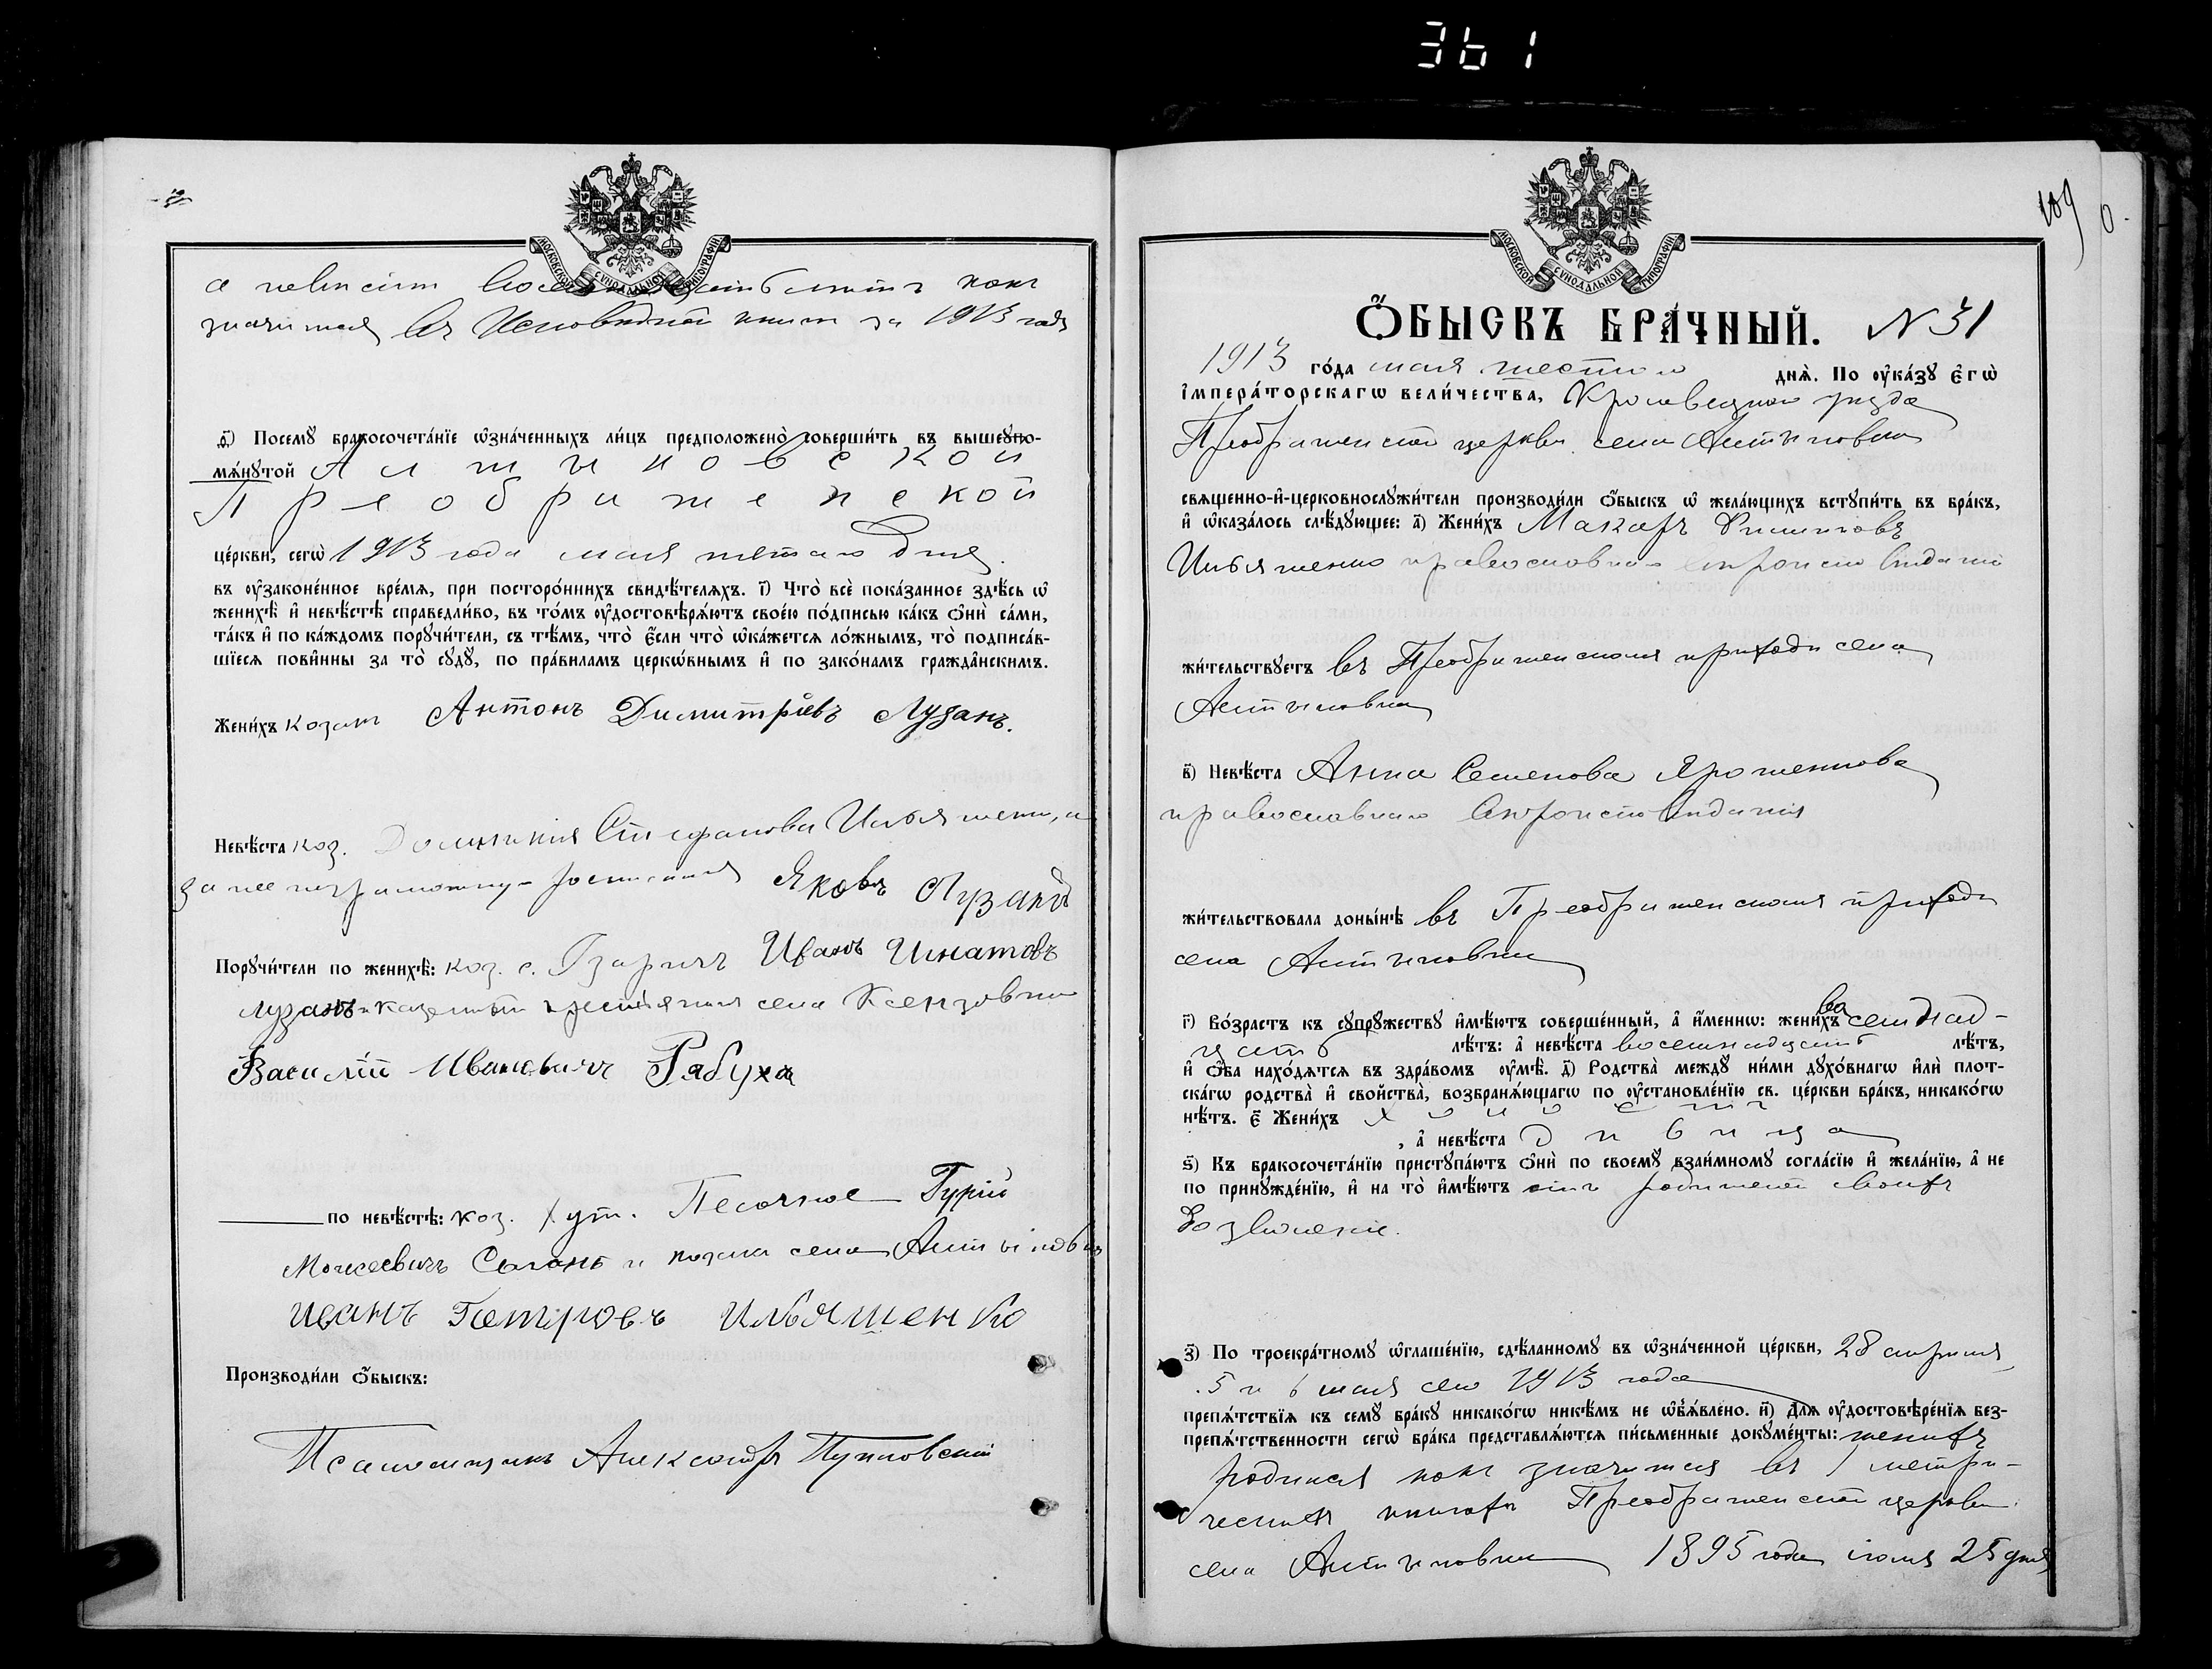 361
МОСКОВСКОЙ СѴНОДАЛЬНОЙ ТИПОГРАФІИ
а невѣстѣ восемнадцать лѣтъ какъ
значится въ Исповѣдной книгѣ за 1913 годъ
ѳ҃) Посемꙋ̀ бракосочета́нїе ѡ҆зна́ченныхъ ли́цъ предположено̀ соверши́ть въ вышеꙋпо-
мѧ́нꙋтой Алтыновской
Преображенской
це́ркви, сегѡ̀ 1913 года мая шестаго дня
въ ᲂу҆законе́нное вре́мѧ, при посторо́ннихъ свидѣ́телѧхъ. і҃) Что̀ всѐ пока́занное здѣ́сь ѡ҆
женихѣ̀ и҆ невѣ́стѣ справедли́во, въ то́мъ ᲂу҆достовѣрѧ́ютъ свое́ю по́дписью ка́къ ѻ҆нѝ са́ми,
та́къ и҆ по ка́ждомъ порꙋчи́тели, съ тѣ́мъ, что̀ є҆́сли что̀ ѡ҆ка́жетсѧ ло́жнымъ, то̀ подписа́в-
шїесѧ пови́нны за то̀ сꙋдꙋ̀, по пра́виламъ церкѡ́внымъ и҆ по зако́намъ гражда́нскимъ.
Жени́хъ козакъ Антонъ Димитріевъ Лузанъ.
Невѣ́ста коз. Домникія Стефанова Ильяшенко, а
за нее неграмотную росписался Яковъ Лузанъ
Порꙋчи́тели по женихѣ̀: коз. с. Иванъ Игнатовъ
Лузанъ и казенный крестьянинъ села Ксензовки
Василій Ивановичъ Рябуха
по невѣ́стѣ: коз. хут. Песочное Гурій
Моисеевичъ и козакъ села Алтыновки
Иванъ Петровъ Ильяшенко
Производи́ли ѻ҆́быскъ:
Псаломщикъ Александръ
109
МОСКОВСКОЙ СѴНОДАЛЬНОЙ ТИПОГРАФІИ
Ѻ҆́БЫСКЪ БРА́ЧНЫЙ. N 31
1913 го́да мая шестого днѧ̀. По ᲂу҆ка́зꙋ є҆гѡ̀
і҆мпера́торскагѡ вели́чества, Кролевецкаго уѣзда
Преображенской церкви села Алтыновки
свѧще́нно-и҆-церковнослꙋжи́тели производи́ли ѻ҆́быскъ ѡ҆ жела́ющихъ встꙋпи́ть въ бра́къ,
и҆ ѡ҆каза́лось слѣ́дꙋющее: а҃) Жени́хъ Макаръ Филиповъ
Ильяшенко православнаго вѣроисповѣданія
жи́тельствꙋетъ въ Преображенскомъ приходѣ села
Алтыновки
в҃) Невѣ́ста Анна Семенова Ярошенкова
православнаго вѣроисповѣданія
жи́тельствовала доны́нѣ въ Преображенскомъ приходѣ
села Алтыновки
г҃) Во́зрастъ къ сꙋпрꙋ́жествꙋ и҆мѣ́ютъ соверше́нный, а҆ и҆́меннѡ: жени́хъ восемнад-
цать лѣ́тъ: а҆ невѣ́ста восемнадцать лѣ́тъ,
и҆ ѻ҆́ба нахо́дѧтсѧ въ здра́вомъ ᲂу҆мѣ̀. д҃) Родства̀ междꙋ̀ ни́ми дꙋхо́внагѡ и҆лѝ плот-
ска́гѡ родства̀ и҆ свойства̀, возбранѧ́ющагѡ по ᲂу҆становле́нїю св. це́ркви бра́къ, никако́гѡ
нѣ́тъ. є҃) Жени́хъ холостъ
, а҆ невѣ́ста дѣвица
ѕ҃) Къ бракосочета́нїю пристꙋпа́ютъ ѻ҆нѝ по своемꙋ̀ взаи́мномꙋ согла́сїю и҆ жела́нїю, а҆ не
по принꙋжде́нїю, и҆ на то̀ и҆мѣ́ютъ отъ родителей своихъ
дозволеніе.
з҃) По троекра́тномꙋ ѡ҆глаше́нїю, сдѣ́ланномꙋ въ ѡ҆зна́ченной це́ркви, 28 апрѣля
5 и 6 мая сего 1913 года
препѧ́тствїѧ къ семꙋ̀ бра́кꙋ никако́гѡ никѣ́мъ не ѡ҆б̾ѧ́влено. и҃) Длѧ̀ ᲂу҆достовѣре́нїѧ без-
препѧ́тственности сегѡ̀ бра́ка представлѧ́ютсѧ пи́сьменные докꙋме́нты: женихъ
родился какъ значится въ метри-
ческихъ книгахъ Преображенской церкви
села Алтыновки 1895 года іюля 25 дня